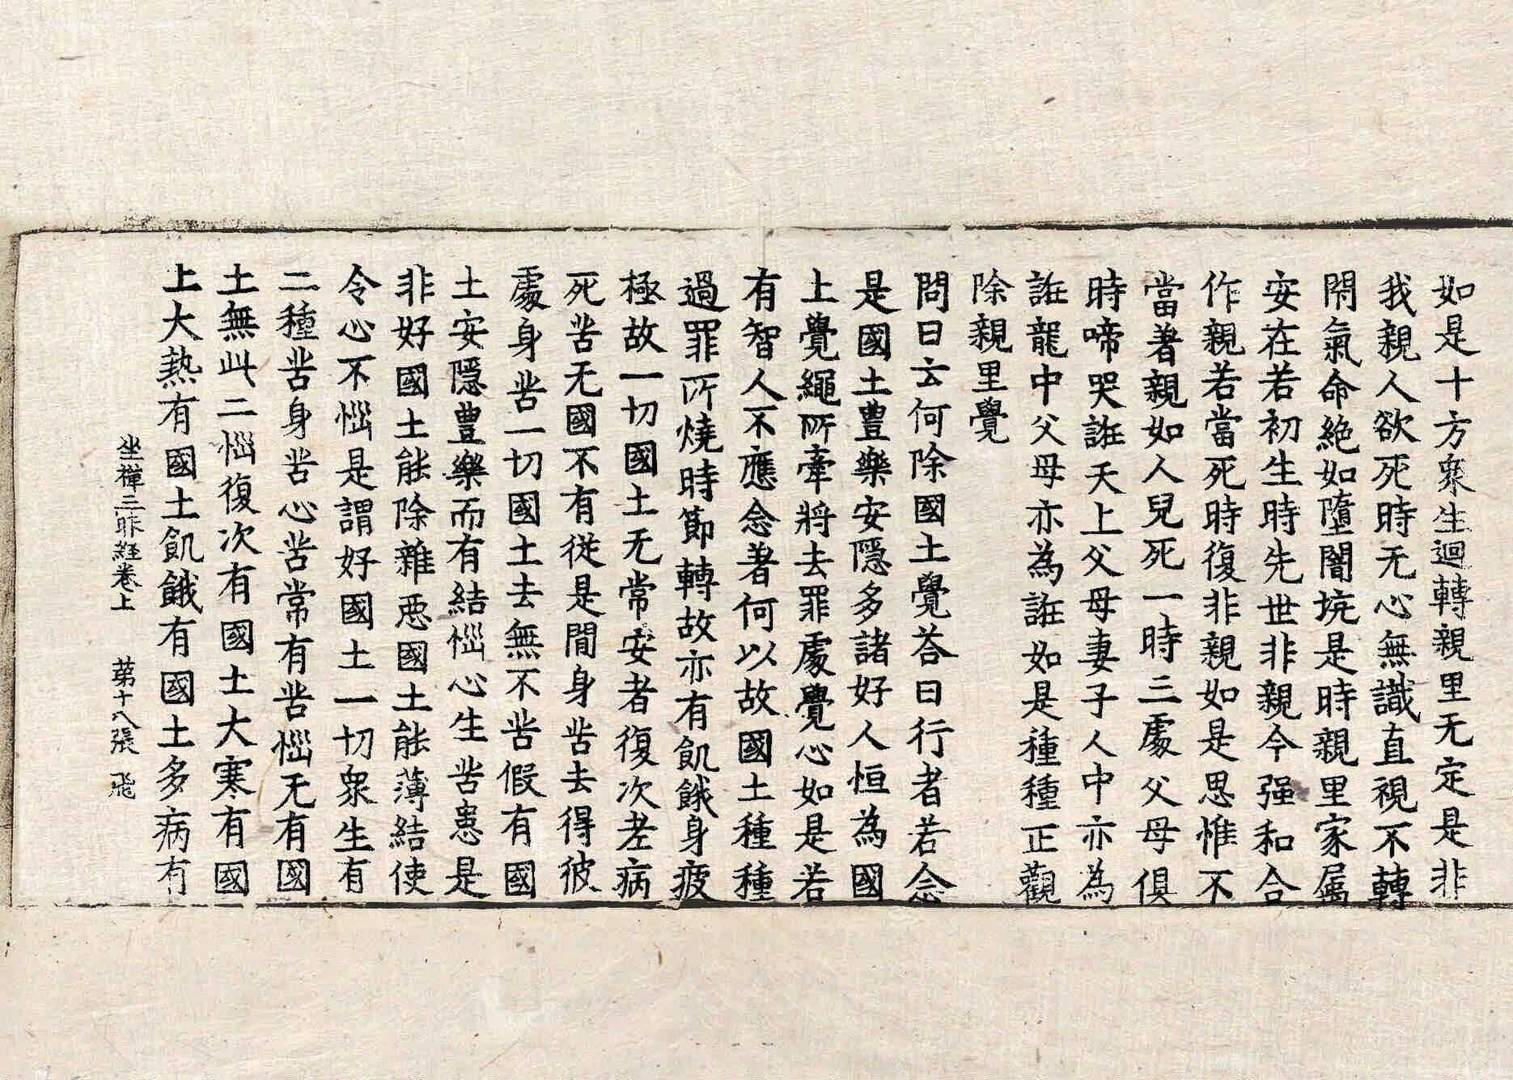 如是十方衆生迴轉親里无定是非
我親人欲死時无心無識直視不轉
閇氣命絶如墮闇坑是時親里家属
安在若初生時先世非親今强和合
作親若當死時復非親如是思惟不
當著親如人兒死一時三處父母俱
時啼哭誑天上父母妻子人中亦為
誑龍中父母亦為誑如是種種正觀
除親里覺
問曰云何除國土覺荅曰行者若念
是國土豊樂安隱多諸好人恒為國
土覺繩所牽將去罪處覺心如是若
有智人不應念著何以故國土種種
過罪所燒時節轉故亦有飢餓身疲
極故一切國土无常安者復次老病
死苦无國不有從是間身苦去得彼
處身苦一切國土去無不苦假有國
土安隱豊樂而有結惱心生苦患是
非好國土能除雜惡國土能薄結使
令心不惱是謂好國土一切衆生有
二種苦身苦心苦常有苦惱无有國
土無此二惱復次有國土大寒有國
土大熱有國土飢餓有國土多病有
坐禪三昧經卷上 第十八張 飛